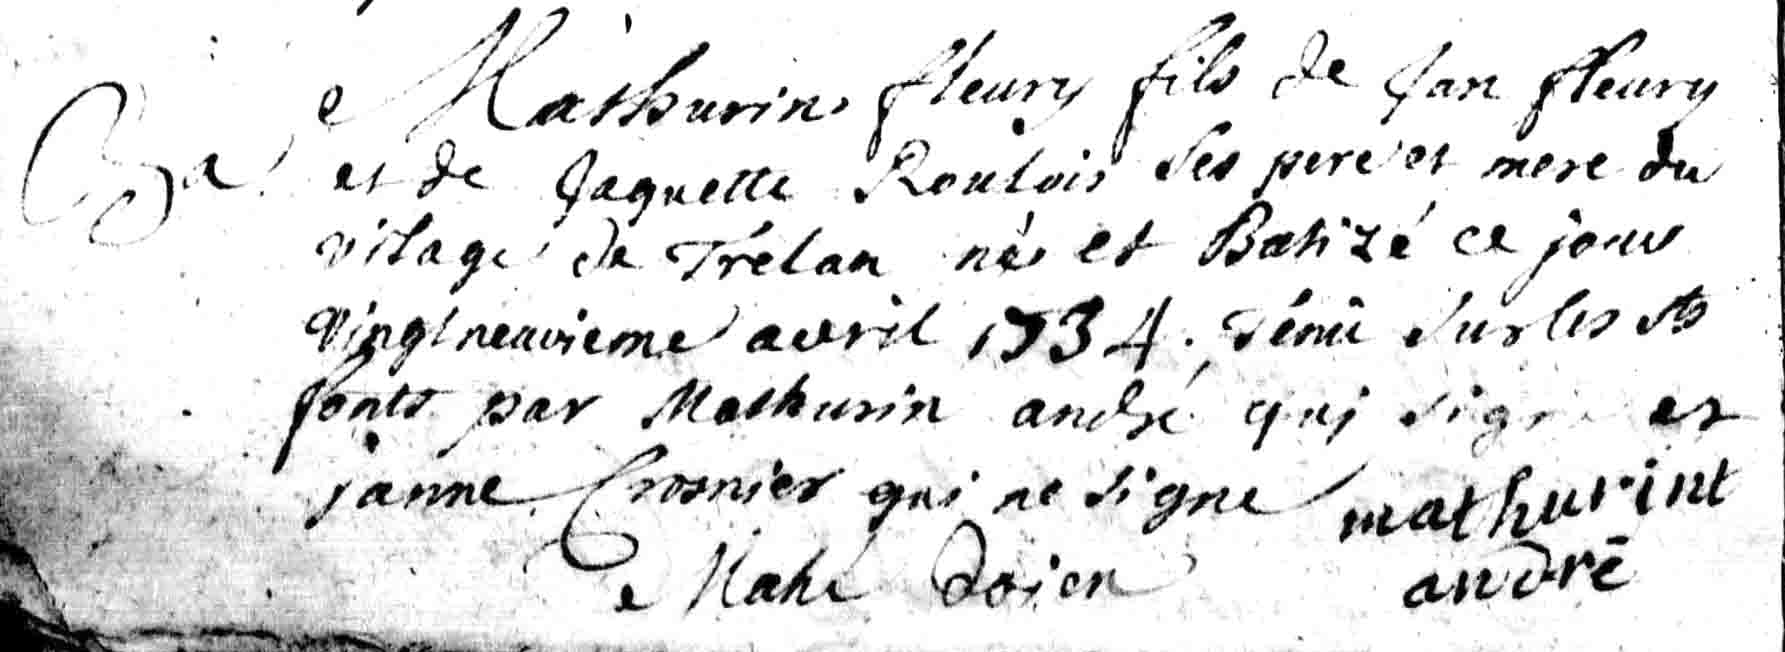 Ba Mathurin fleury fils de Jan fleury
et de Jaquette Roulois ses pere et mere du
vilage de Trélan né et Batizé ce jour
vingtneuvieme avril 1734. ténû sur les sts
fonts par Mathurin andré qui signe et
janne Crosnier qui ne signe mathurint
Mahé Doien andré